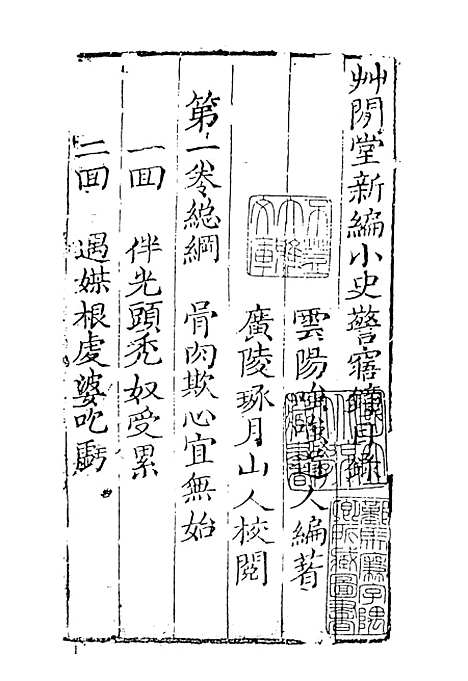 艸閒堂新編小史警寤鐘目錄
雲陽嗤嗤道人編著
廣陵琢月山人校閱
第一卷總綱　骨肉欺心宜無始
一回　伴光頭秃奴受累
二回　遇媒根虔婆吃虧